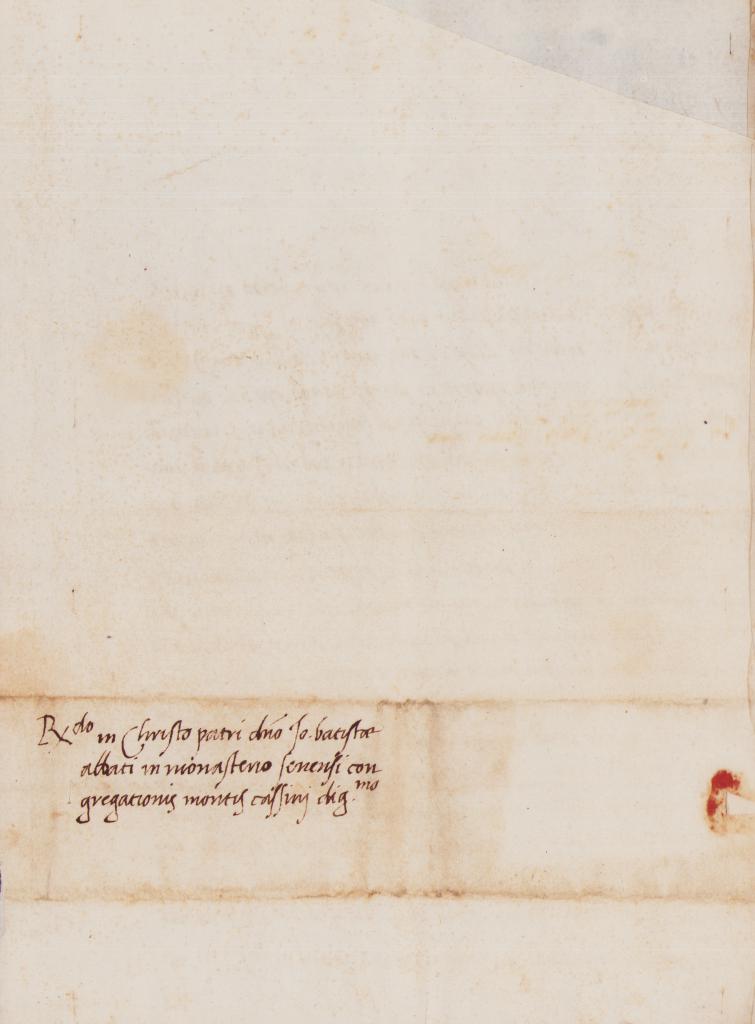 R.do in Christo patri dño Jo. batistæ
abbati in monasterio senensi con
gregationis montis cassini dig.mo